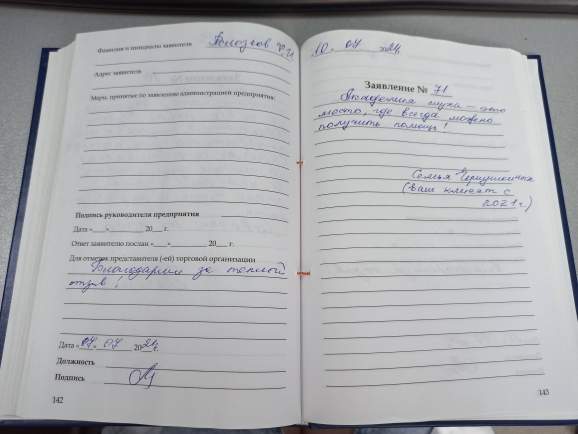 Фамилия и инициалы заявителя
Адрес заявителя
Меры, принятые по заявлению администрацией предприятия:
Подпись руководителя предприятия
Дата «___»__________ 20___ г.
Ответ заявителю послан «___»__________ 20___ г.
Для отметок представителя (-ей) торговой организации
Благодарим за теплый
отзыв!
Дата «07» 07 2024 г.
Должность
Подпись
142
10. 07 2024
Заявление № 71
Академия слуха – это
место, где всегда можно
получить помощь!
Семья
(Ваш клиент с
2021 г.)
143